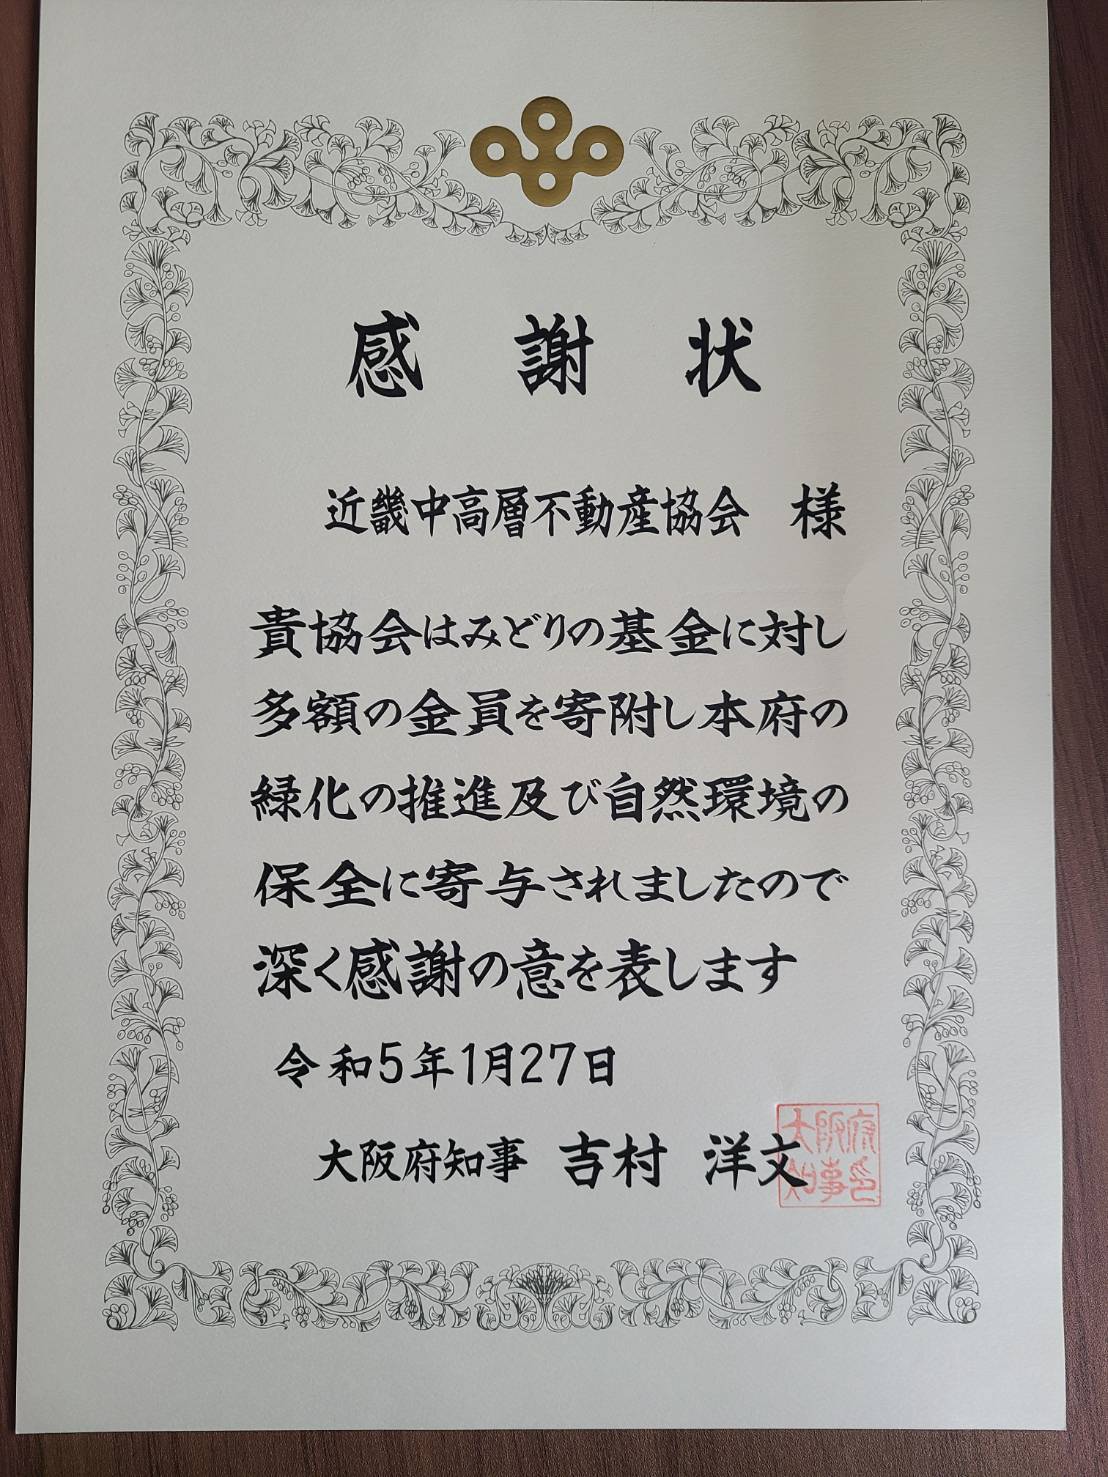 感謝状
近畿中高層不動産協会 様
貴協会はみどりの基金に対し
多額の金員を寄附し本府の
緑化の推進及び自然環境の
保全に寄与されましたので
深く感謝の意を表します
令和5年1月27日
大阪府知事 吉村 洋文
大阪府
知事印